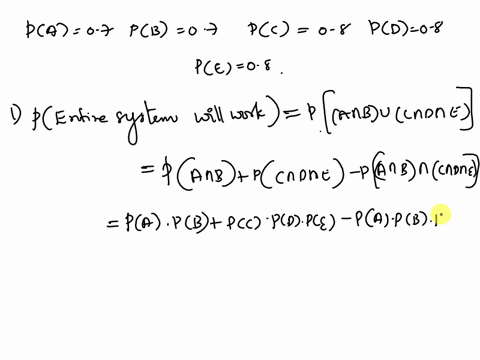 P(A)=0.7 P(B)=0.7 P(C)=0.8 P(D)=0.8
P(E)=0.8.
1) P(Entire system will work) = P[(A∩B)∪(C∩D∩E)]
= P(A∩B)+P(C∩D∩E)-P[(A∩B)∩(C∩D∩E)]
= P(A)·P(B)+P(C)·P(D)·P(E)-P(A)·P(B)·